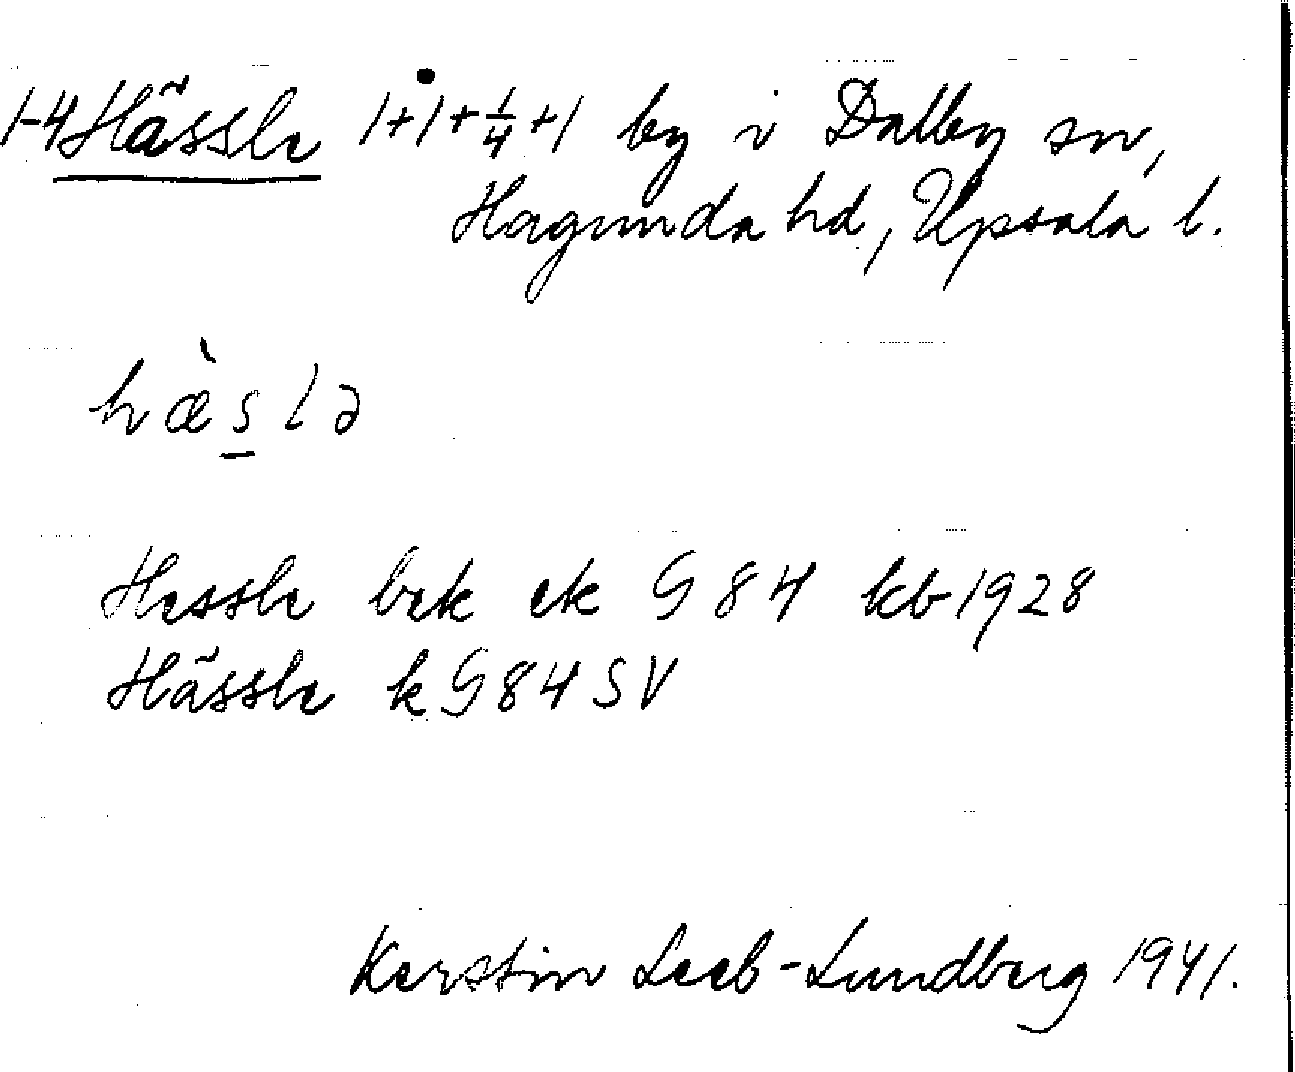 1-4 Hässle 1+1+¼+1 by i Dalby sn,
Hagunda hd, Upsala l.
hæ̀s̲lə
Hessle bek ek G 84 kb 1928
Hässle k G 84 SV
Kerstin Leeb-Lundberg 1941.